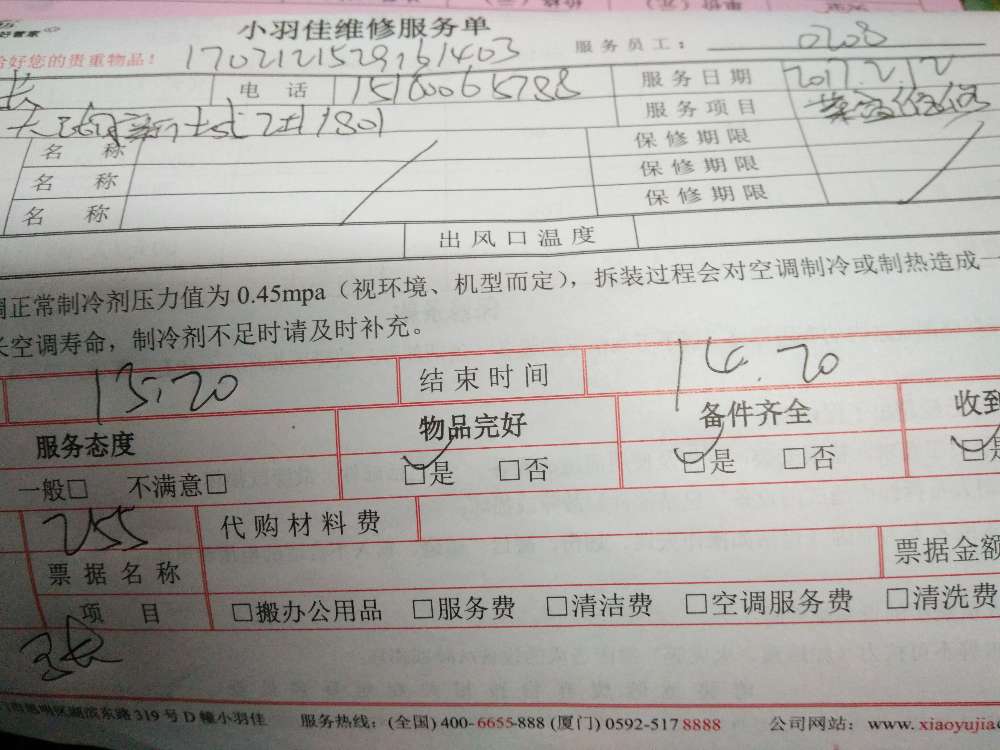 好管家 小羽佳维修服务单
好您的贵重物品! 1702121529161403 服务员工: 0208
电话 15160065788 服务日期 2017.2.12
服务项目
名称 保修期限
名称 保修期限
名称 保修期限
出风口温度
调正常制冷剂压力值为 0.45mpa(视环境、机型而定),拆装过程会对空调制冷或制热造成一
长空调寿命,制冷剂不足时请及时补充。
13:20 结束时间 14.20
服务态度 物品完好 备件齐全 收到
一般□ 不满意□ □是 □否 □是 □否 □是
255 代购材料费
票据名称 票据金额
项目 □搬办公用品 □服务费 □清洁费 □空调服务费 □清洗费
门市思明区湖滨东路 319 号 D 幢小羽佳 服务热线:(全国) 400-6655-888 (厦门) 0592-517 8888 公司网站: www.xiaoyujia